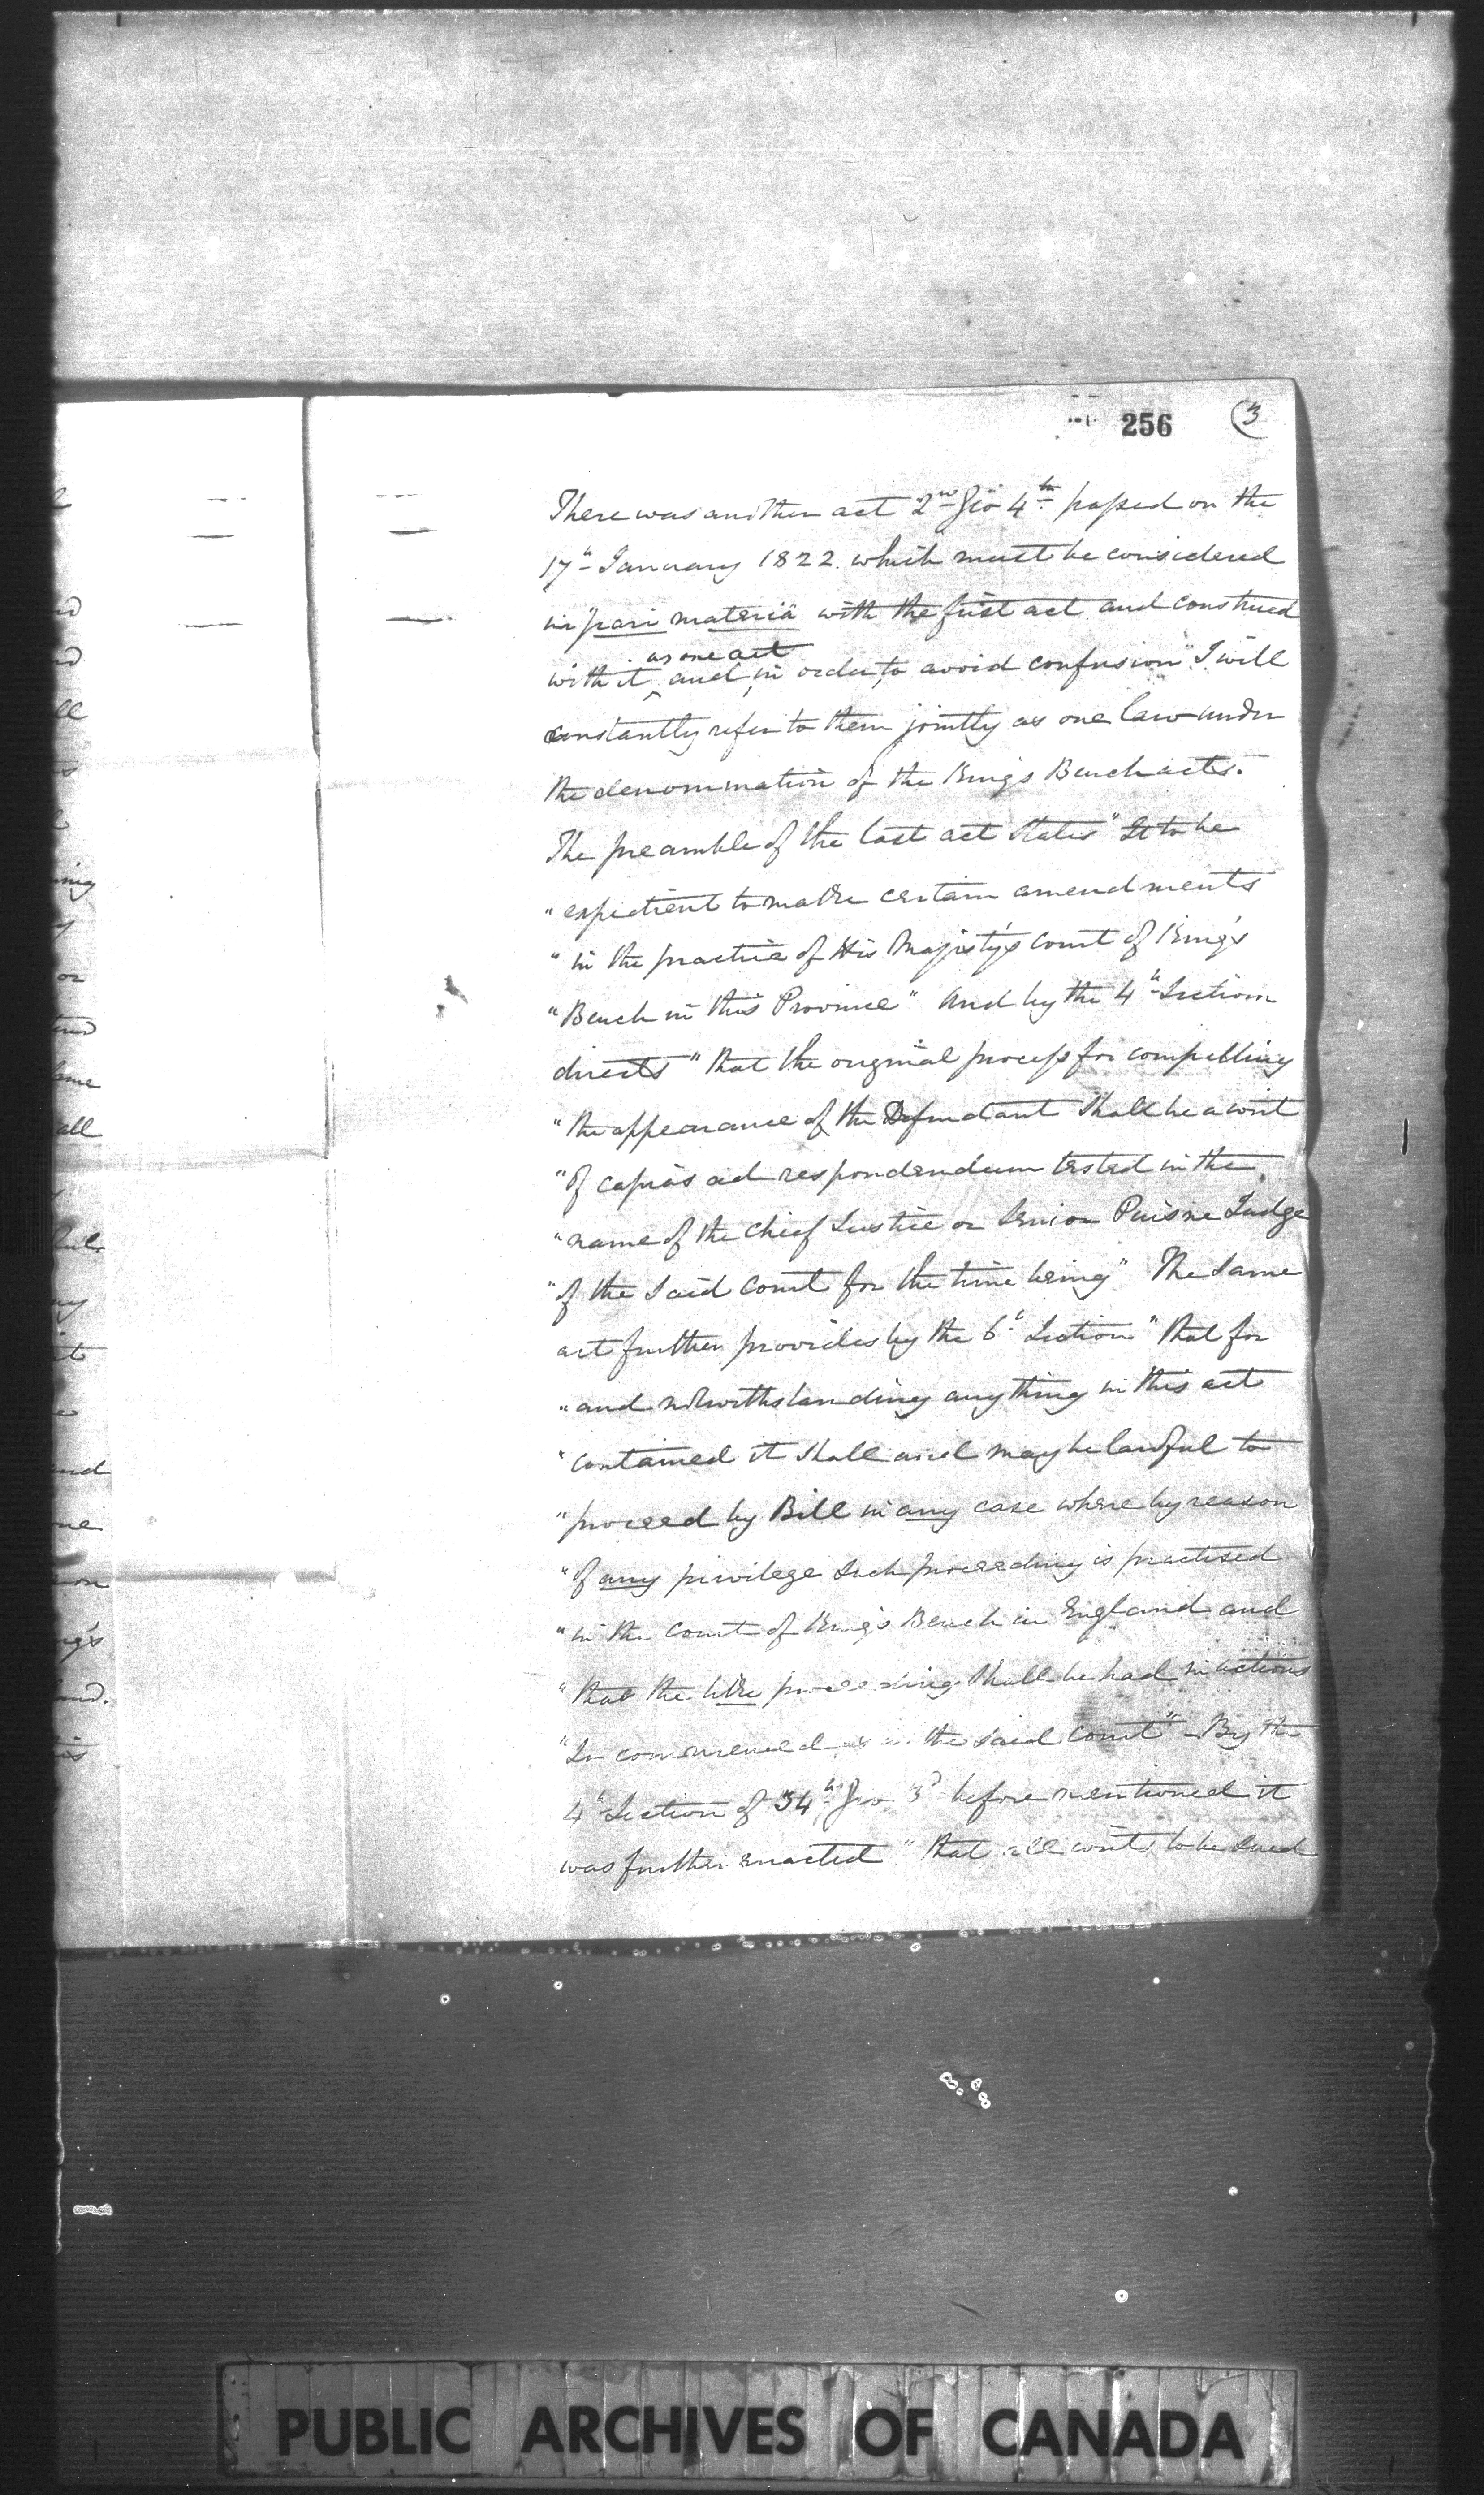 256 (3
There was another act 2nd Geo 4th passed on the
17th January 1822. which must be considered
in "pari materiâ" with the first act and construed
as one act
with it and, in order, to avoid confusion I will
constantly refer to them jointly as one law under
the denomination of the Kings Bench acts.
The preamble of the last act States "It to be
"expedient to make certain amendments
"in the practice of His Majesty's Court of King's
"Bench in this Province" And by the 4th Section
directs "that the original process for compelling
"the appearance of the Defendant Shall be a writ
"of capias ad respondendum tested in the
"name of the Chief Justice or Senior Puisne Judge
"of the Said Court for the time being" The Same
act further provides by the 6th Section "that for
"and notwithstanding anything in this act
"contained it Shall and may be lawful to
"proceed by Bill in any case where by reason
"of any privilege Such proceeding is practised
"in the Court of King's Bench in England and
"that the like proceeding Shall be had in actions
"So commenced in the Said Court" By the
4th Section of 34th Geo 3d before mentioned it
was further enacted "that all writs to be Sued
ing
or
ame
all
ful
ny
it
and
one
on
ng's
and.
PUBLIC ARCHIVES OF CANADA